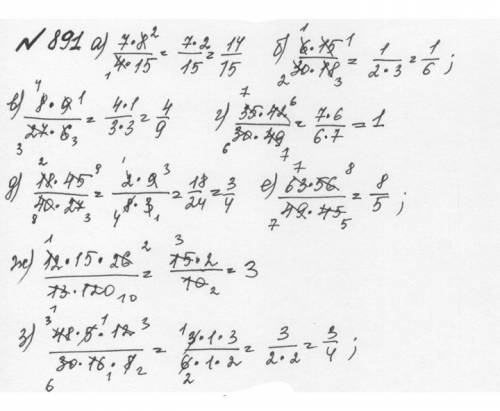 № 891 а) 7·8/4·15 = 7·2/15 = 14/15 б) 6·15/30·18 = 1/2·3 = 1/6 ;
в) 8·9/27·6 = 4·1/3·3 = 4/9 г) 35·42/30·49 = 7·6/6·7 = 1
д) 18·45/40·27 = 2·9/8·3 = 18/24 = 3/4 е) 63·56/49·45 = 8/5 ;
ж) 12·15·26/13·120 = 15·2/10 = 3
з) 48·5·12/30·16·8 = 3·1·3/6·1·2 = 3/2·2 = 3/4 ;